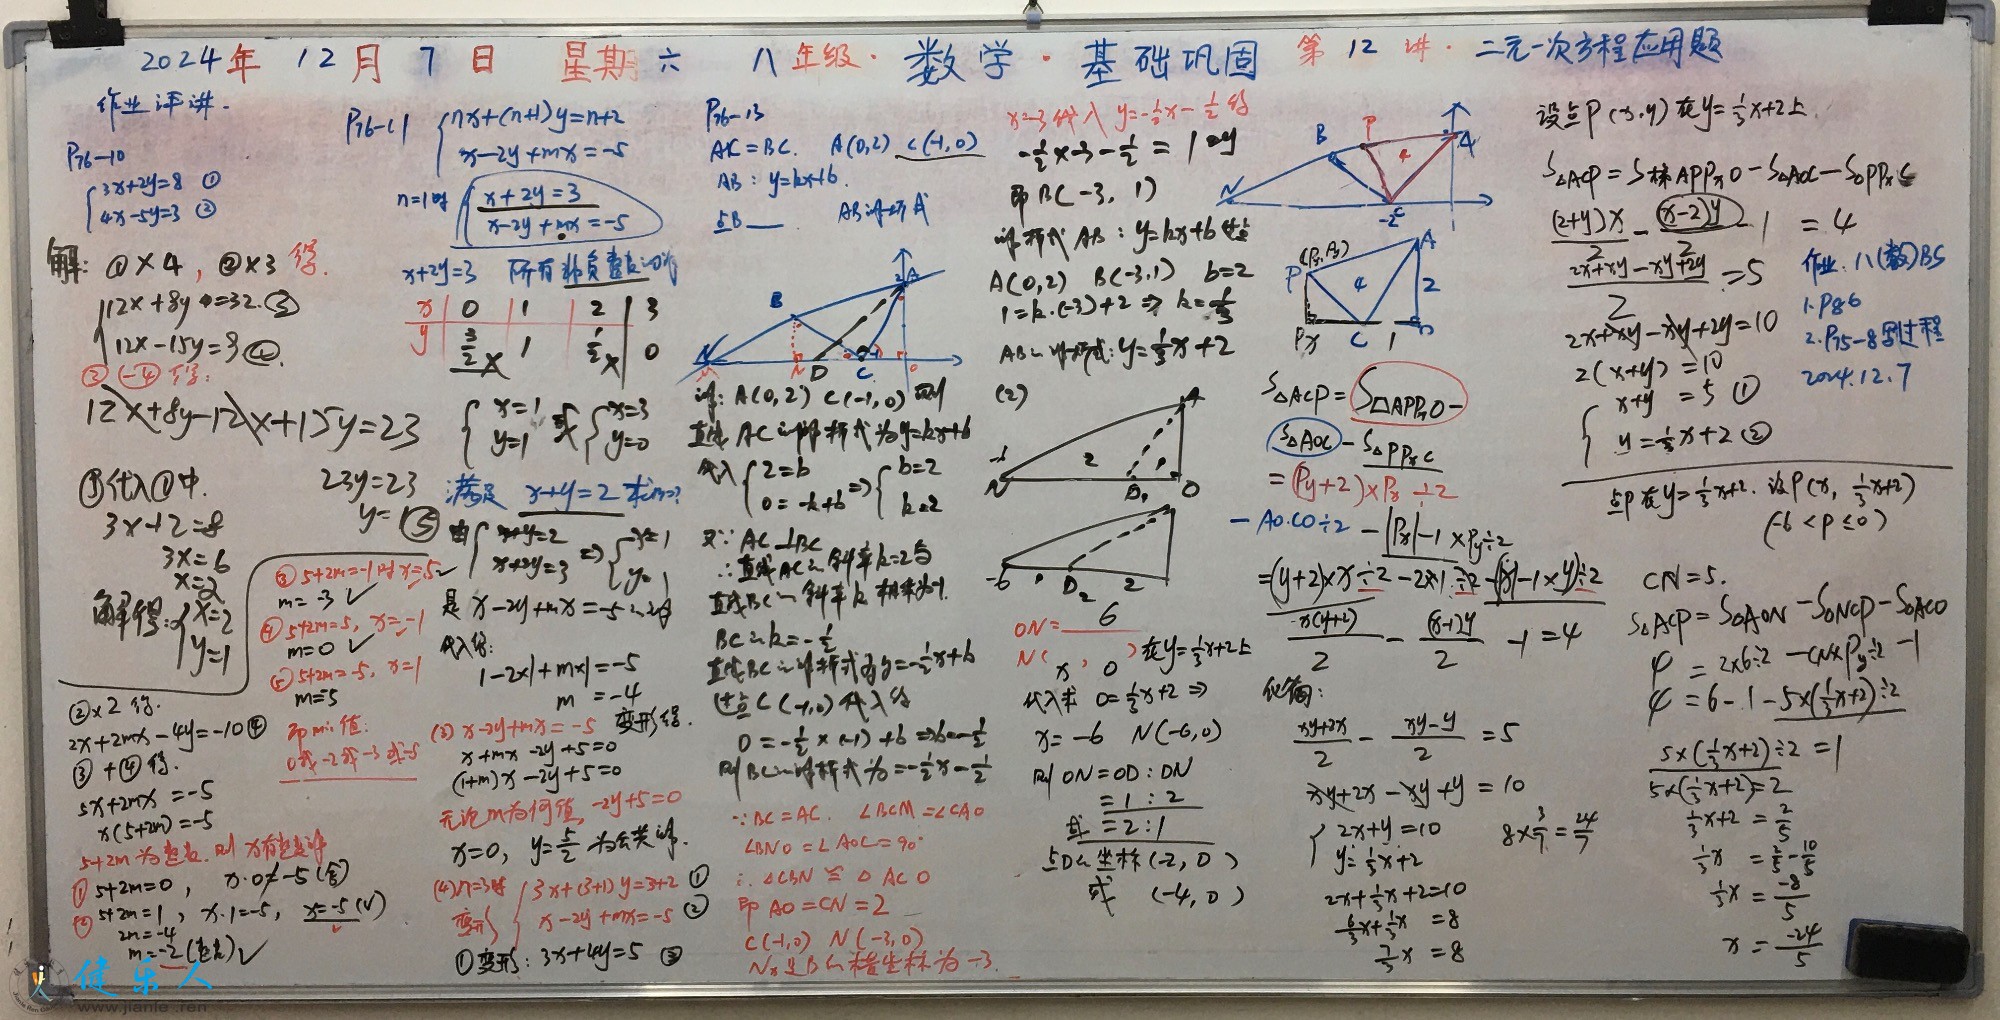 2024年 12月 7日 星期六 八年级·数学·基础巩固 第12讲·二元一次方程应用题
作业评讲.
P76-10
3x+2y=8 ①
4x-5y=3 ②
解: ①×4, ②×3 得.
12x+8y=32.③
12x-15y=9④.
③-④得:
12x+8y-12x+15y=23
23y=23
y=1⑤
⑤代入①中.
3x+2=8
3x=6
x=2
解得: x=2
y=1
②×2 得.
2x+2mx-4y=-10④
③+④得.
5x+2mx=-5
x(5+2m)=-5
5+2m为整数.则x有整数解
①5+2m=0, x·0≠-5(舍)
②5+2m=1, x·1=-5, x=-5(√)
2m=-4
m=-2(整数)√
③5+2m=-1时x=5√
m=-3√
④5+2m=5, x=-1
m=0√
⑤5+2m=-5, x=1
m=-5
即m的值:
0或-2或-3或-5
P76-11
nx+(n+1)y=n+2
x-2y+mx=-5
n=1时
x+2y=3
x-2y+mx=-5
x+2y=3 所有非负整数
x 0 1 2 3
y 3/2× 1 1/2× 0
x=1
y=1
或
x=3
y=0
满足 x+y=2 求m?
由 x+y=2
x+2y=3
⇒ x=1
y=1
是 x-2y+mx=-5
代入得:
1-2×1+m×1=-5
m=-4
(3) x-2y+mx=-5 变形得.
x+mx-2y+5=0
(1+m)x-2y+5=0
无论m为何值, -2y+5=0
x=0, y=5/2 为公共解.
(4)n=3时
3x+(3+1)y=3+2 ①
变形 x-2y+mx=-5 ②
①变形: 3x+4y=5 ③
P76-13
AC=BC. A(0,2) C(-1,0)
AB: y=kx+b.
点B___ AB解析式
A B N D C
解: A(0,2) C(-1,0) 则
直线AC的解析式为y=kx+b
代入 2=b
0=-k+b
⇒ b=2
k=2
又∵AC⊥BC
∴直线AC的斜率k=2与
直线BC的斜率k相乘为-1.
BC的k=-1/2
直线BC的解析式为y=-1/2x+b
过点C(-1,0)代入得
0=-1/2×(-1)+b⇒b=-1/2
则BC的解析式为=-1/2x-1/2
∵BC=AC. ∠BCM=∠CAO
∠BNO=∠AOC=90°
∴△CBN≅△ACO
即AO=CN=2
C(-1,0) N(-3,0)
Nx是B的横坐标为-3.
x=-3代入y=-1/2x-1/2得
-1/2×-3-1/2=1=y
即B(-3,1)
解析式AB: y=kx+b过
A(0,2) B(-3,1) b=2
1=k·(-3)+2⇒k=1/3
AB的解析式: y=1/3x+2
(2)
A -6 N 2 D₁ O
-6 D₂ 2
ON=6
N(x, 0)在y=1/3x+2上
代入求 0=1/3x+2⇒
x=-6 N(-6,0)
则ON=OD:DN
=1:2
或=2:1
点D的坐标(-2,0)
或 (-4,0)
N B P 4 A C
P(Px,Py) A 4 2 Px C 1 O
S△ACP=S△APPxO-
S△AOC-S△PPxC
=(Py+2)×Px÷2
-AO·CO÷2-|Px|-1×Py÷2
=(y+2)×x÷2-2×1÷2-(|x|-1×y)÷2
x(y+2)/2-(x-1)y/2-1=4
化简:
(xy+2x)/2-(xy-y)/2=5
xy+2x-xy+y=10
2x+y=10
y=1/3x+2
2x+1/3x+2=10
6/3x+1/3x=8
7/3x=8
8×3/7=24/7
设点P(x,y)在y=1/3x+2上.
S△ACP=S梯APPxO-S△AOC-S△PPxC
(2+y)x/2-(x-2)y/2-1=4
(2x+xy-xy+2y)/2=5
2x+xy-xy+2y=10
2(x+y)=10
x+y=5 ①
y=1/3x+2 ②
作业: 八(数)BS
1.P86
2.P75-8写过程
2024.12.7
点P在y=1/3x+2. 设P(x, 1/3x+2)
(-6<P≤0)
CN=5.
S△ACP=S△AON-S△NCP-S△ACO
4=2×6÷2-CN×Py÷2-1
4=6-1-5×(1/3x+2)÷2
5×(1/3x+2)÷2=1
5×(1/3x+2)=2
1/3x+2=2/5
1/3x=2/5-10/5
1/3x=-8/5
x=-24/5
健乐人
www.jianle.ren